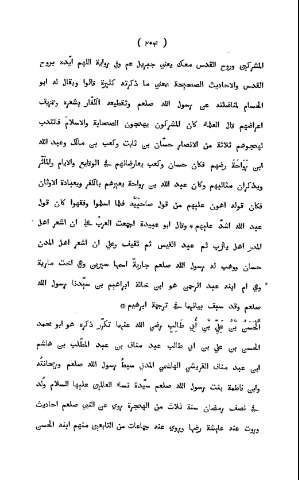 ( ٢٠٣ )
المشركين وروح القدس معك يعنى جبريل عم وفى رواية اللهم أيده بروح
القدس والاحاديث الصحيحة بمعنى ما ذكرته كثيرة قالوا ويقال له ابو
الحسام لمناضلته عن رسول الله صلعم وتقطيعه الكفار بشعره وتمزيف
اعراضهم قال العلماء كان المشركون يهجون الصحابة والاسلام فانتدب
لهجوهم ثلاثة من الانصار حسّان بن ثابت وكعب بن مالك وعبد الله
ابن رَوَاحَةَ رضهم فكان حسان وكعب يعارضانهم فى الوقايع والايام والمآثر
ويذكران مثالبهم وكان عبد الله بن رواحة يعيرهم بالكفر وبعبادة الاوثان
فكان قوله اهون عليهم من قول صاحبَيْه فلما اسلموا وفقهوا كان قول
عبد الله اشدّ عليهم * وقال ابو عبيدة اجتمعت العرب على ان اشعر اهل
المدن اهل يثرب ثم عبد القيس ثم ثقيف وعلى ان اشعر اهل المدن
حسان ووهب له رسول الله صلعم جارية اسمها سيرين وهى اخت مارية
وهى ام ابنه عبد الرحمن هو ابن خالة ابراهيم بن سيّدنا رسول الله
صلعم وقد سبق بيانهما فى ترجمة ابراهيم *
الحَسَنُ بْنُ عَلِىِّ بْنِ أَبِى طَالِبٍ رضى الله عنهما تكرّر ذكره هو ابو محمد
الحسن بن على بن ابى طالب عبد مناف بن عبد المطّلب بن هاشم
ابن عبد مناف القريشى الهاشمى المدنى سبط رسول الله صلعم وريحانته
وابن فاطمة بنت رسول الله صلعم سيّدة نساء العالمين عليها السلام وُلد
فى نصف رمضان سنة ثلاث من الهجرة روى عن النبى صلعم احاديث
وروت عنه عايشة رضها وروى عنه جماعات من التابعين منهم ابنه الحسن